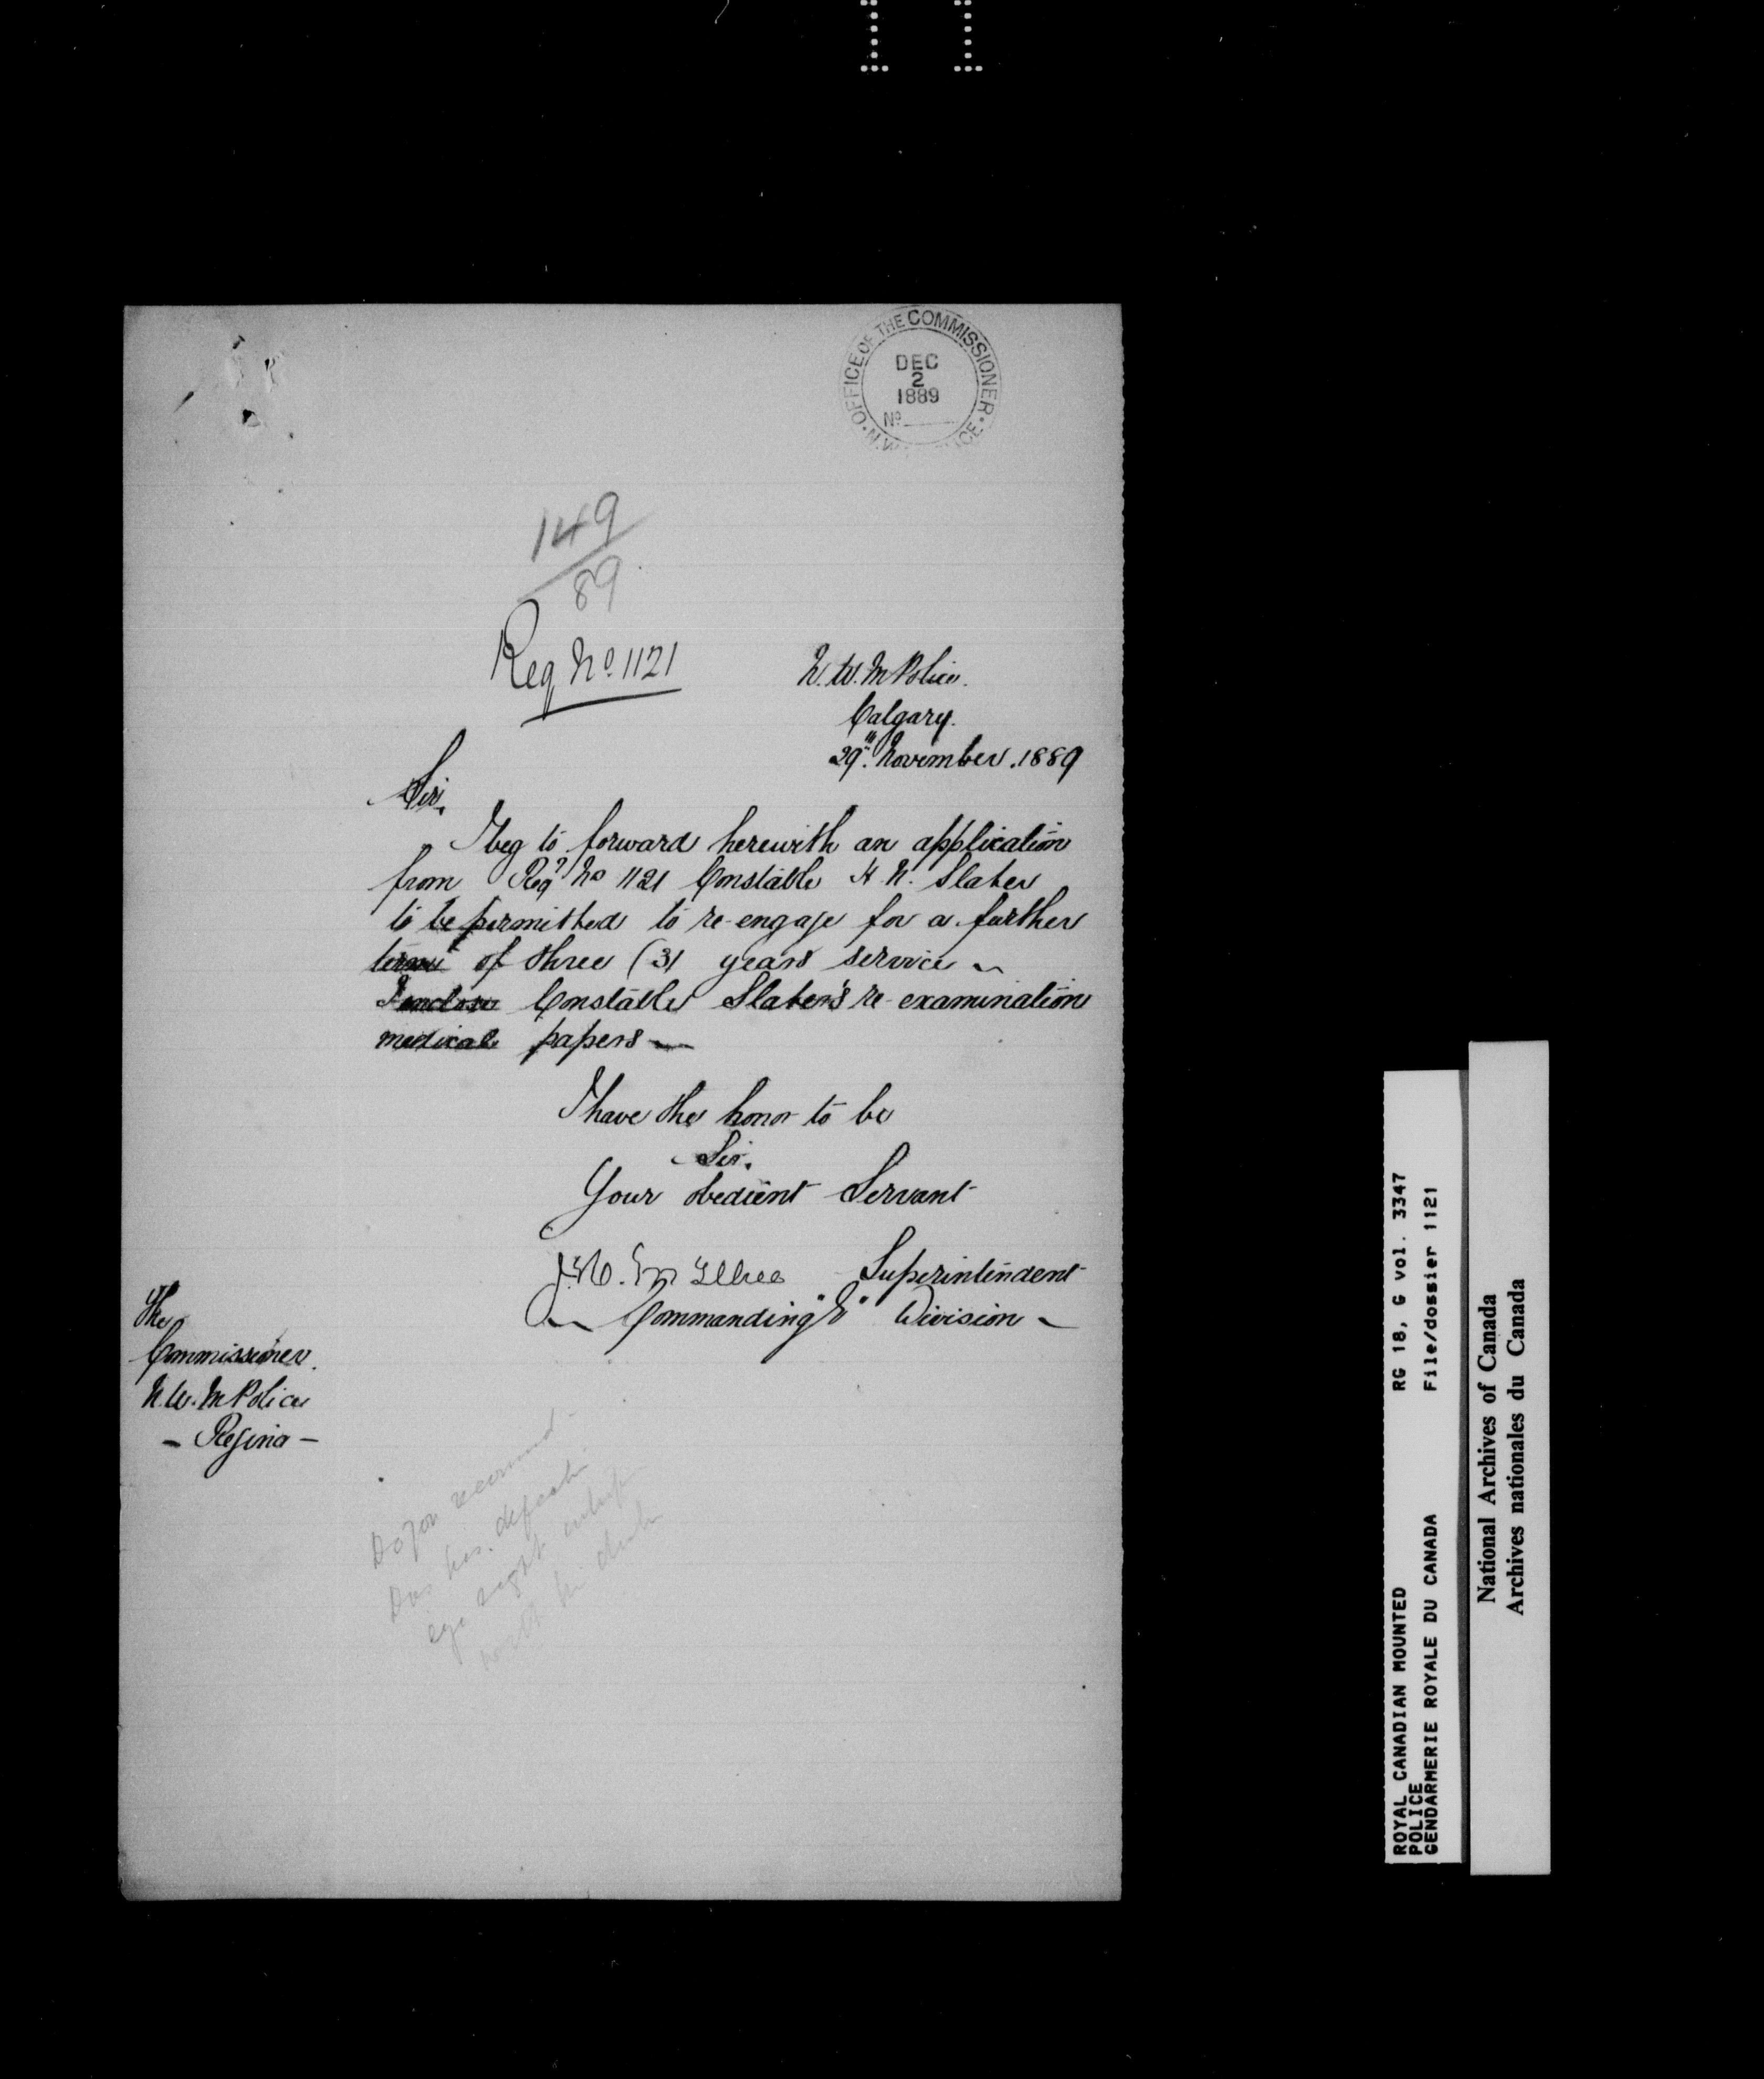 OFFICE OF THE COMMISSIONER
DEC
2
1889
No
149
89
Reg No 1121
N. W. M Police.
Calgary.
29th November. 1889
Sir,
I beg to forward herewith an application
from Regl No 1121 Constable H. N. Slater
to be permitted to re-engage for a further
term of three (3) years service
I enclose Constable Slater's re-examination
medical papers
I have the honor to be
Sir,
Your obedient Servant
Superintendent
Commanding "E" Division
The
Commissioner.
N. W. M Police
- Regina -
Do you recommend
Does his defective
eye sight
with his
ROYAL CANADIAN MOUNTED
POLICE
GENDARMERIE ROYALE DU CANADA
RG 18, G vol. 3347
File/dossier 1121
National Archives of Canada
Archives nationales du Canada